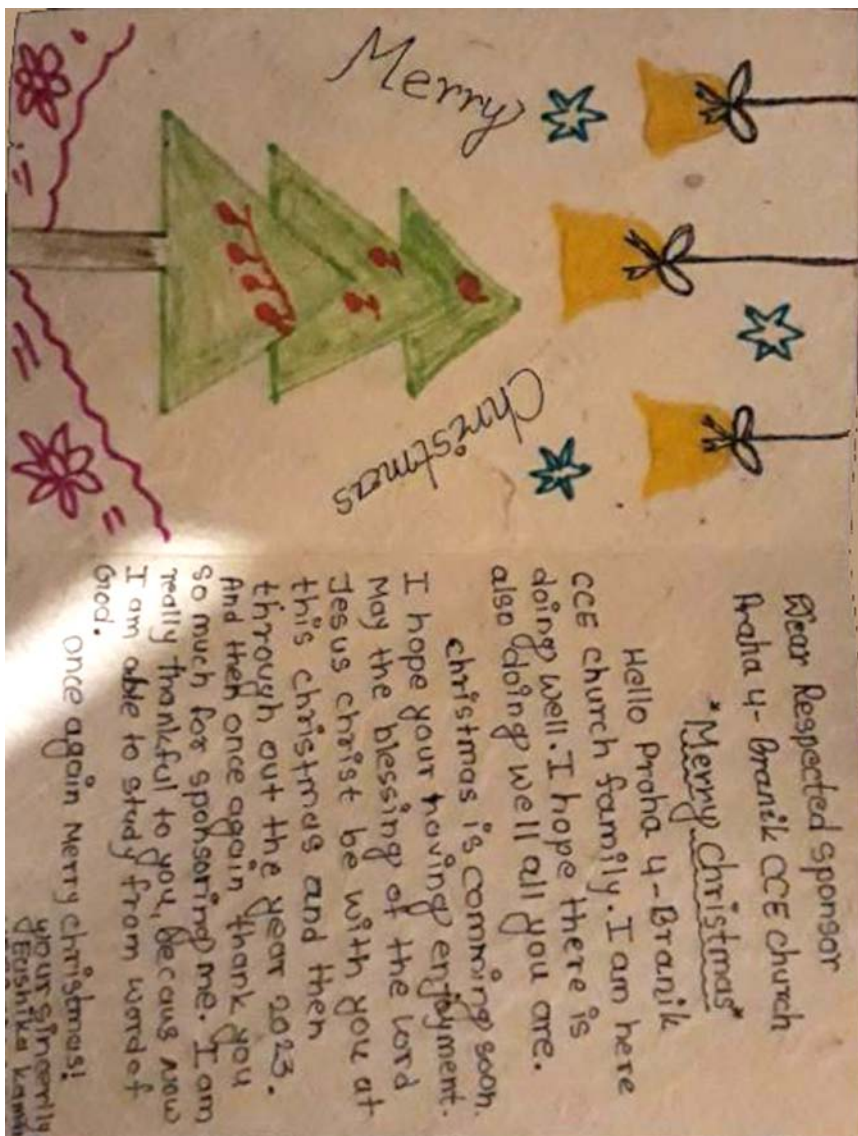 Merry
Christmas
Dear Respected sponsor
Praha 4-Branik CCE church
"Merry christmas"
Hello Praha 4-Branik
CCE church family. I am here
doing well. I hope there is
also doing well all you are.
christmas is comming soon.
I hope your having enjoyment.
May the blessing of the lord
Jesus christ be with you at
this christmas and then
through out the year 2023.
And then once again thank you
so much for sponsoring me. I am
really thankful to you, becaus now
I am able to study from word of
God.
once again Merry christmas!
your sincerily